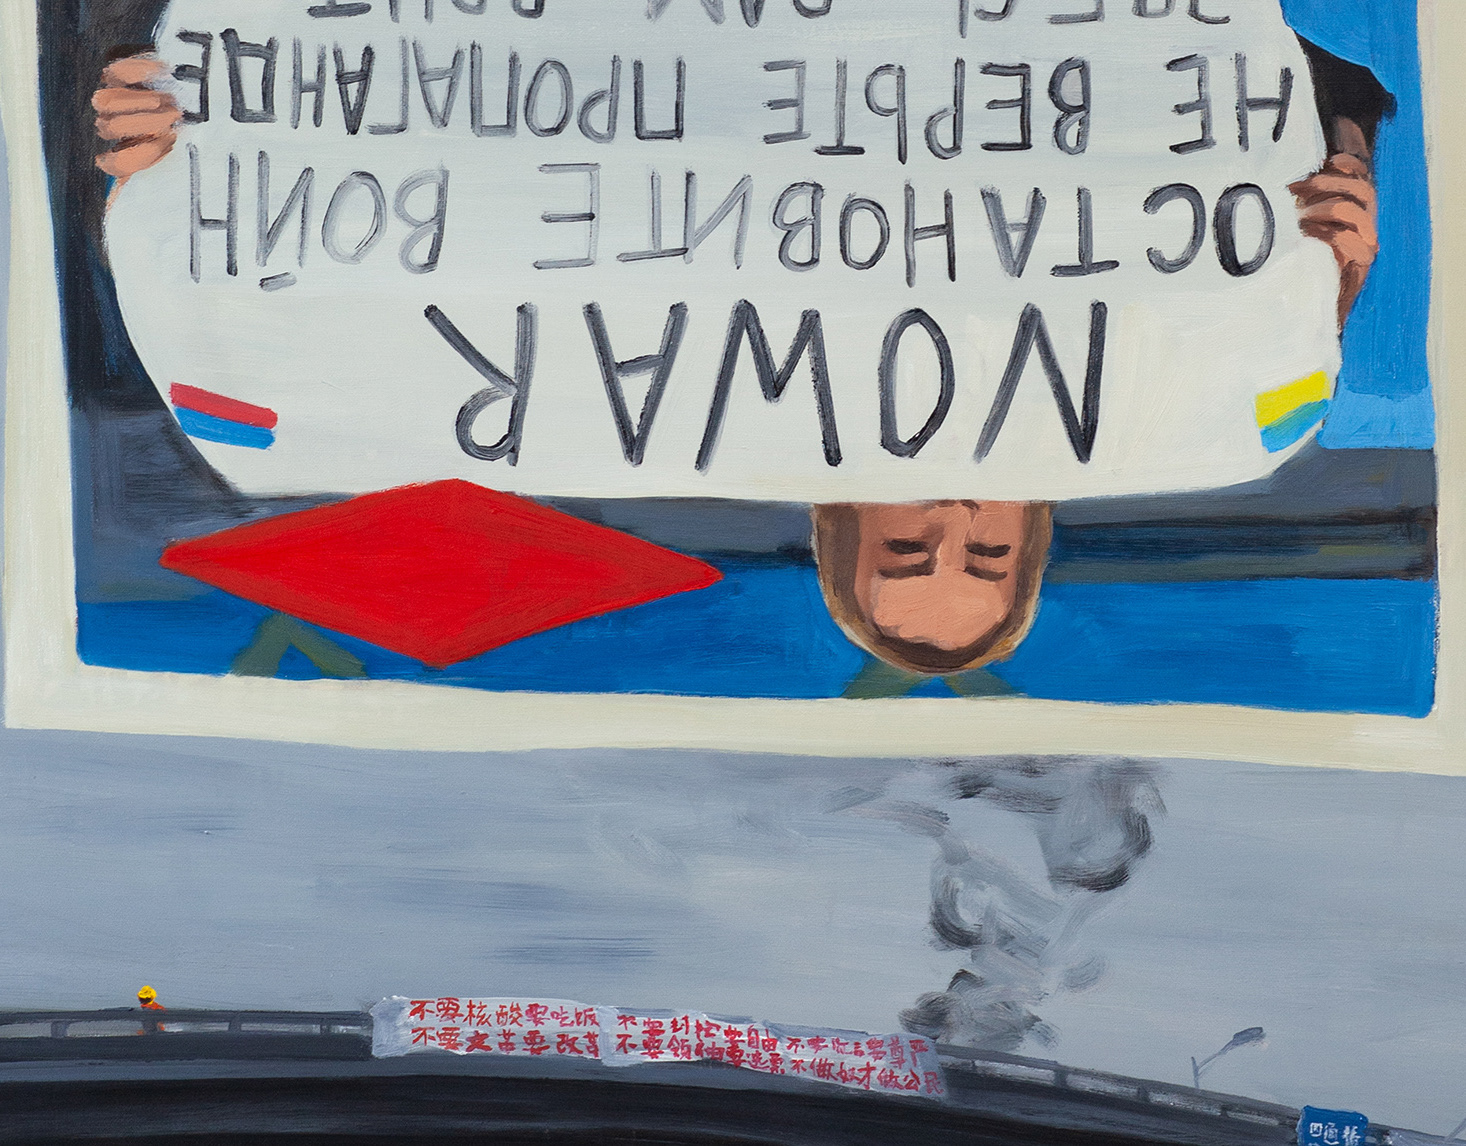 NOWAR
ОСТАНОВИТЕ ВОЙН
НЕ ВЕРЬТЕ ПРОПАГАНДЕ
不要核酸要吃饭 不要封控要自由 不要谎言要尊严
不要文革要改革 不要领袖要选票 不做奴才做公民
四通桥